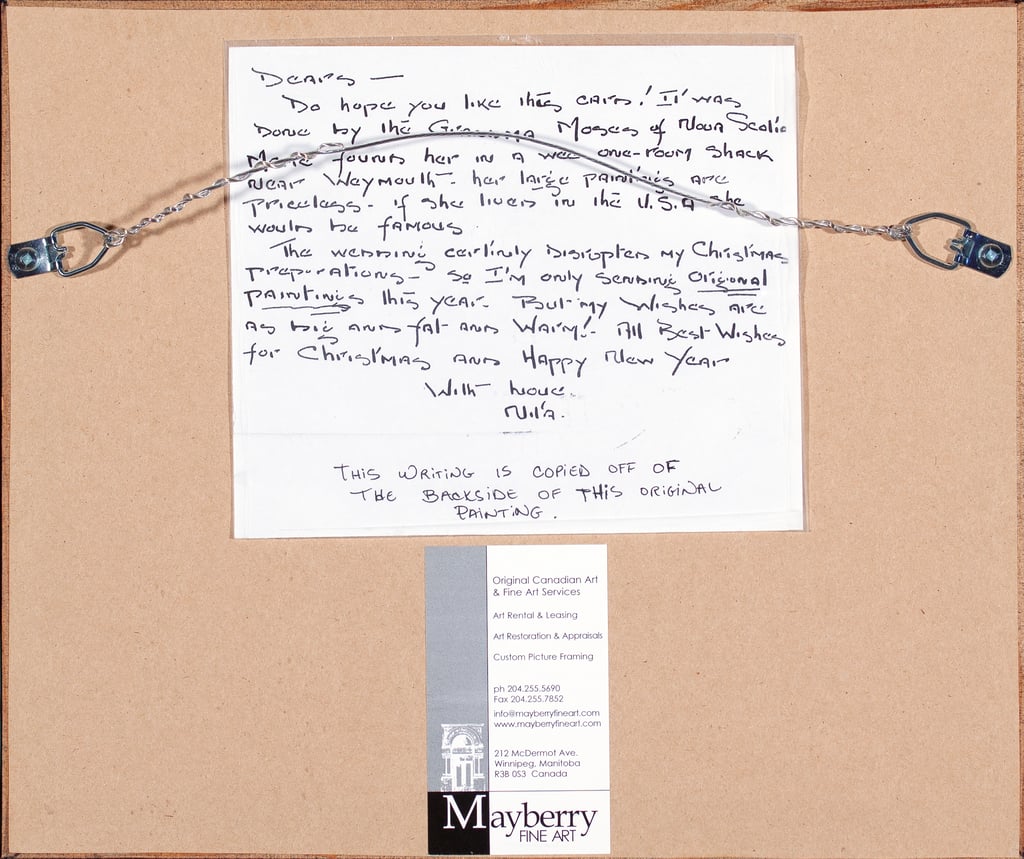 Dears —
Do hope you like this card! It was
Done by the Grandma Moses of Nova Scotia
found her in a wee one-room shack
near Weymouth - her large paintings are
priceless - if she lived in the U.S.A she
would be famous.
The wedding certinly disrupted my Christmas
preparations - so I'm only sending Original
paintings this year. But my wishes are
as big and fat and warm! - All Best Wishes
for Christmas and Happy New Year
With Love.
THIS WRITING IS COPIED OFF OF
THE BACKSIDE OF THIS ORIGINAL
PAINTING.
Original Canadian Art
& Fine Art Services
Art Rental & Leasing
Art Restoration & Appraisals
Custom Picture Framing
ph 204.255.5690
Fax 204.255.7852
info@mayberryfineart.com
www.mayberryfineart.com
212 McDermot Ave.
Winnipeg, Manitoba
R3B 0S3 Canada
Mayberry
FINE ART